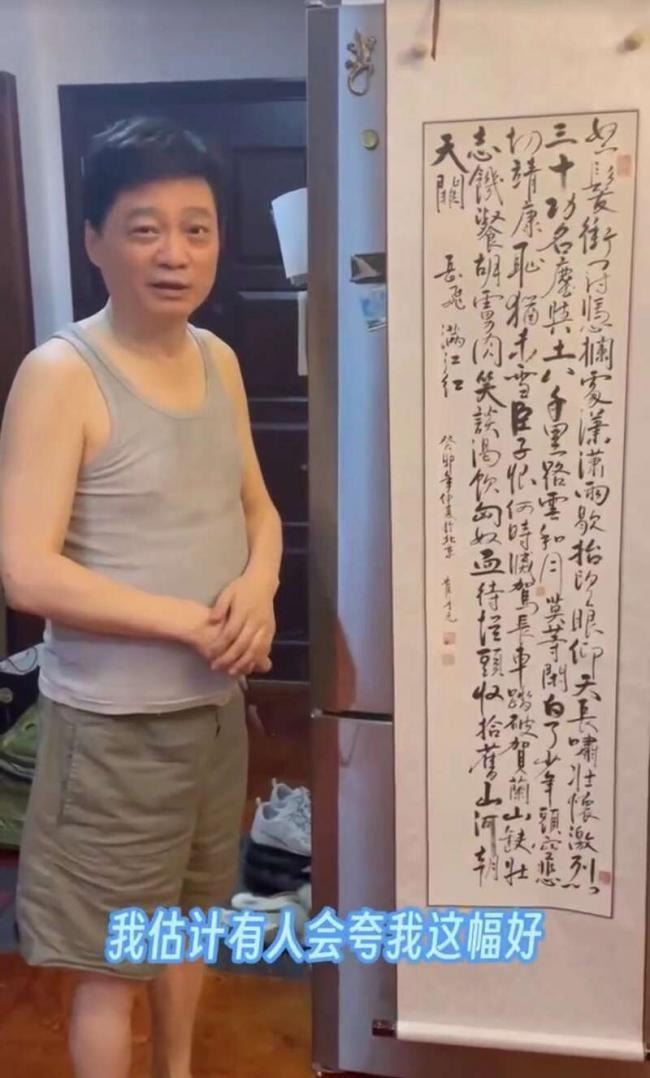 怒髮衝冠憑欄處瀟瀟雨歇抬望眼仰天長嘯壯懷激烈
三十功名塵與土八千里路雲和月莫等閑白了少年頭空悲
切靖康恥猶未雪臣子恨何時滅駕長車踏破賀蘭山缺壯
志饑餐胡虜肉笑談渴飲匈奴血待從頭收拾舊山河朝
天闕 岳飛 滿江紅 癸卯年仲夏於北京
我估计有人会夸我这幅好